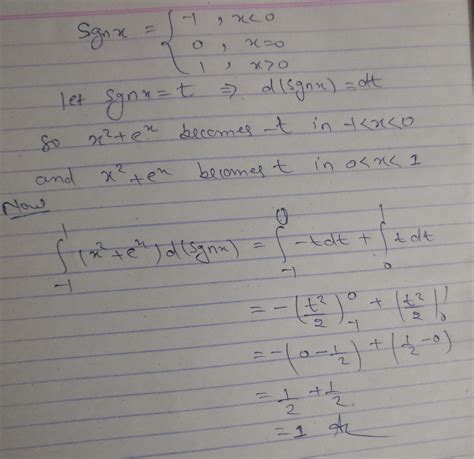 Sgnx = { -1 , x<0
0 , x=0
1 , x>0
let sgnx = t ⇒ d(sgnx) = dt
So x²+eˣ becomes -t in -1<x<0
and x²+eˣ becomes t in 0<x<1
Now
∫₋₁¹ (x²+eˣ) d(sgnx) = ∫₋₁⁰ -t dt + ∫₀¹ t dt
= -(t²/2)₋₁⁰ + (t²/2)₀¹
= -(0-1/2) + (1/2-0)
= 1/2 + 1/2
= 1